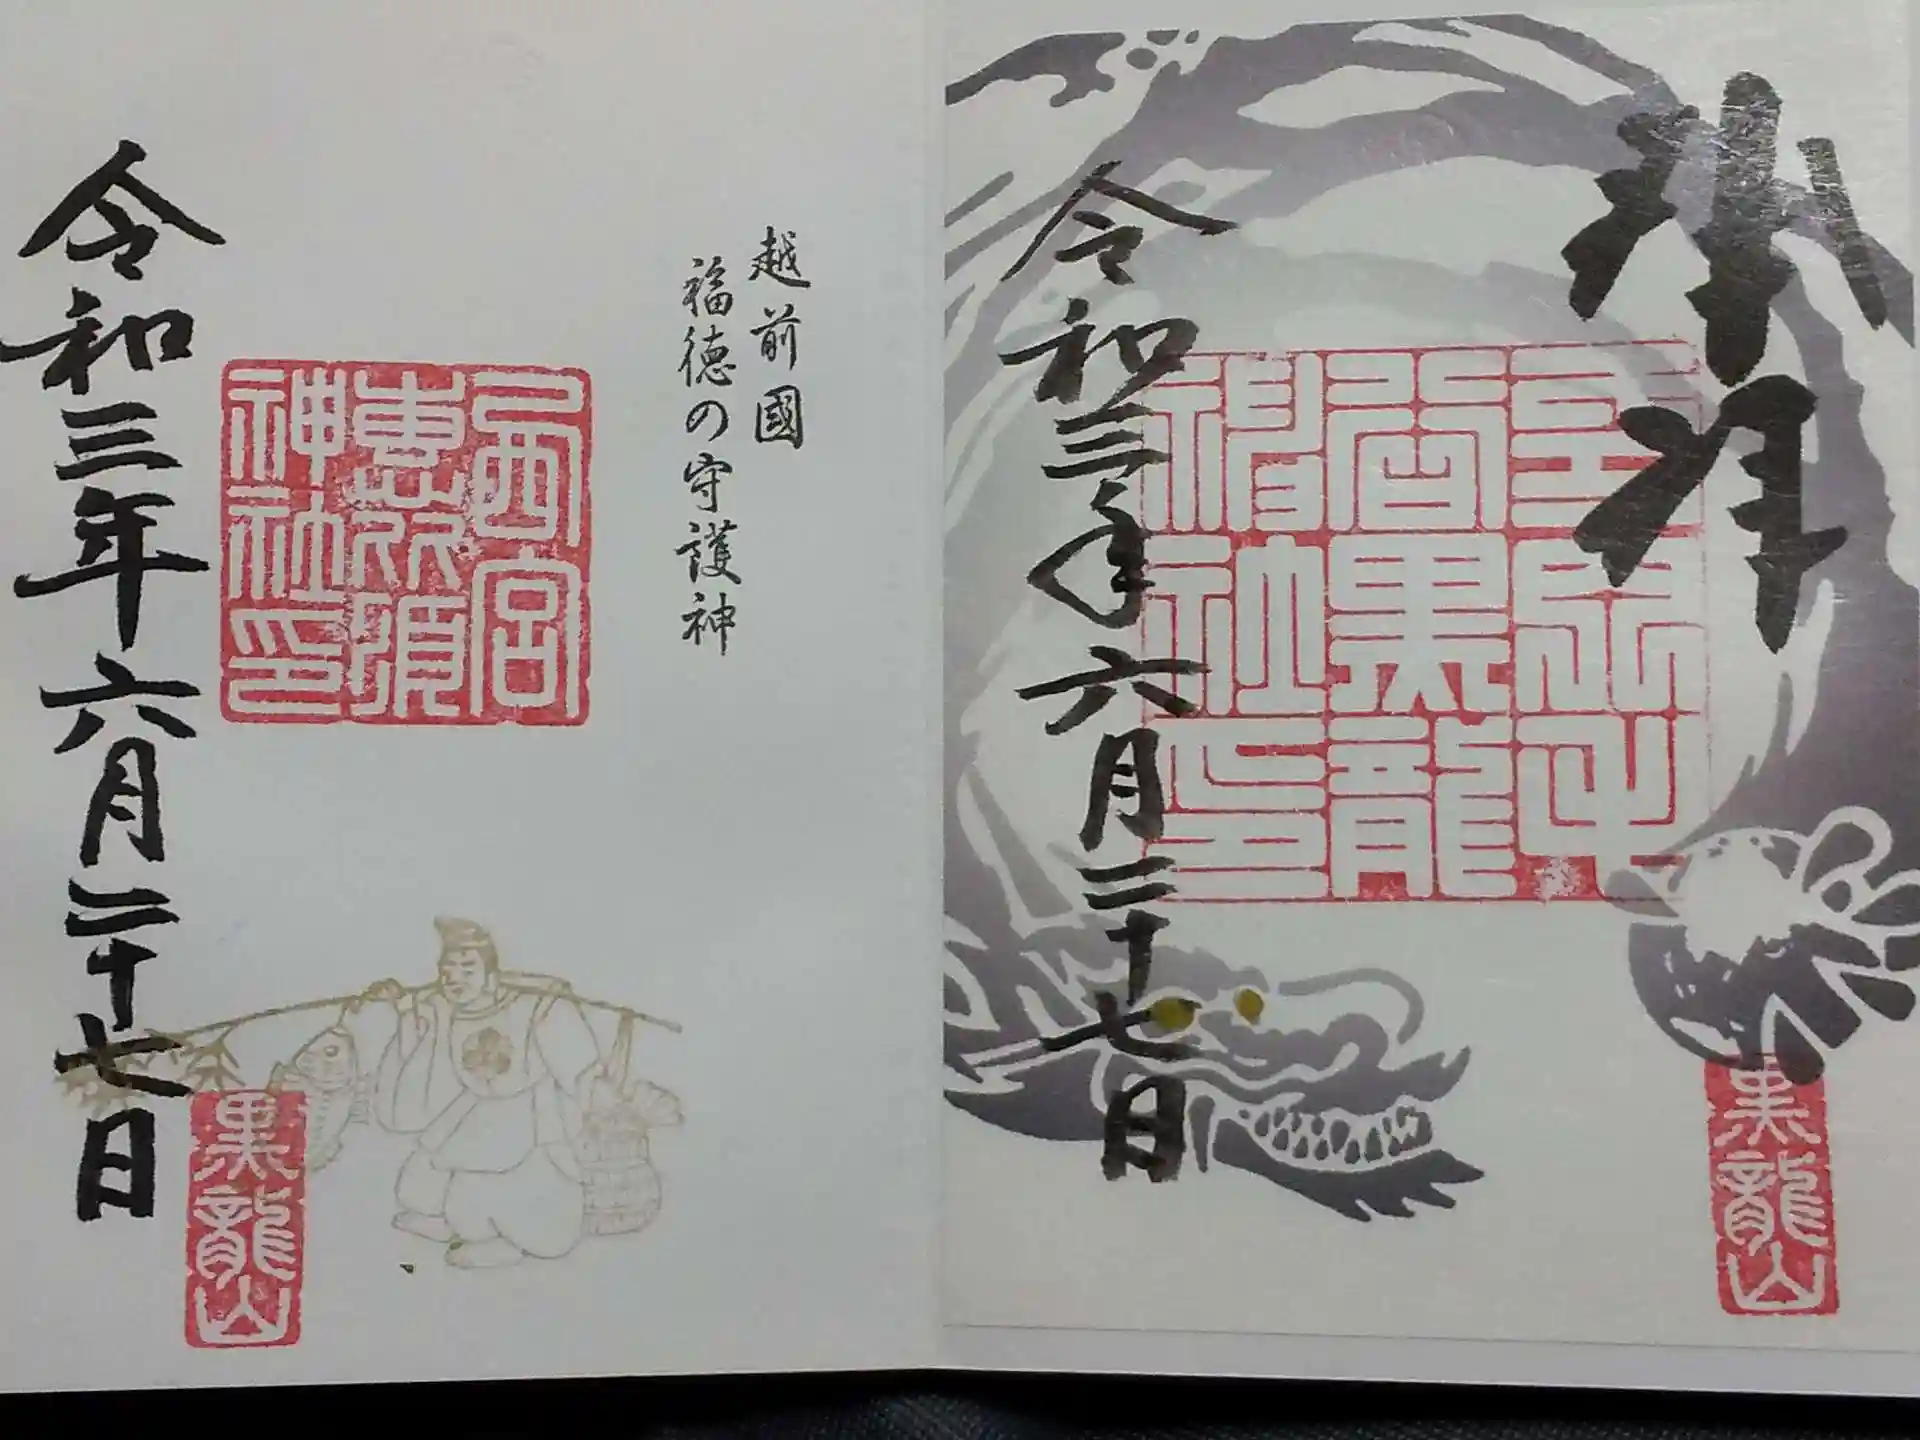 奉拝
毛谷黒龍神社
令和三年六月二十七日
黒龍山
越前國
福徳の守護神
西宮
恵比須
神社印
令和三年六月二十七日
黒龍山